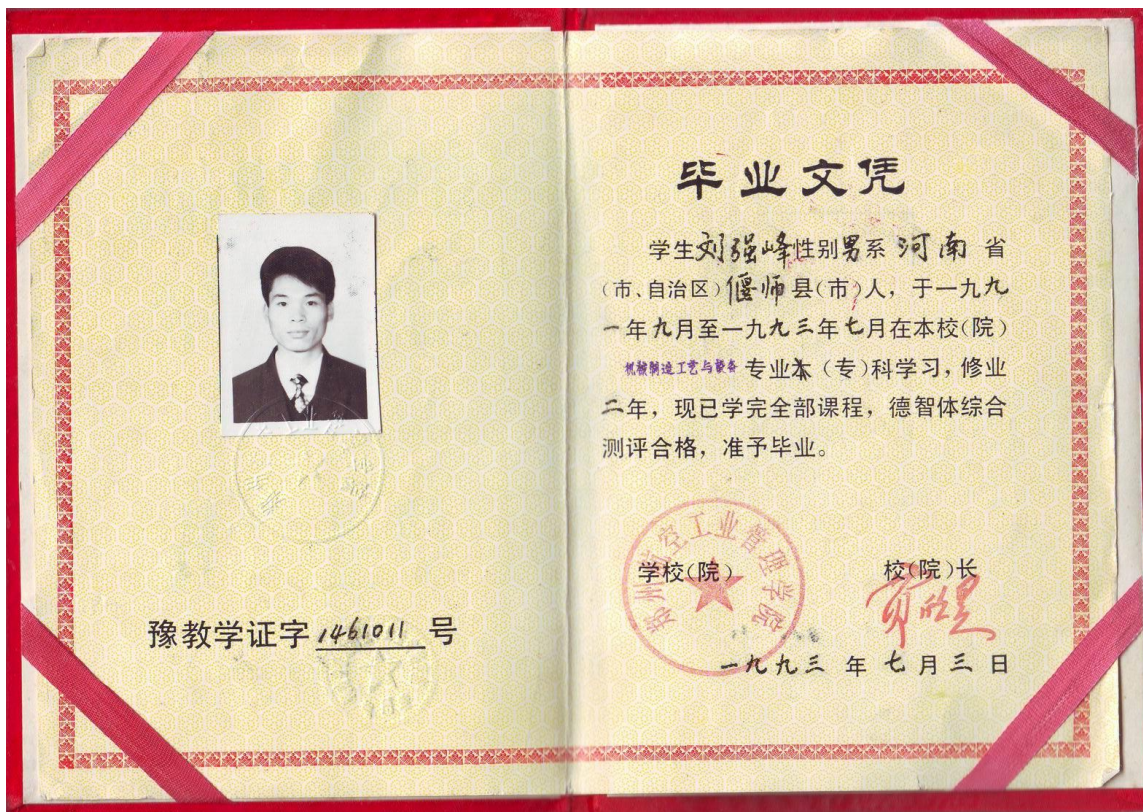 豫教学证字1461011号
毕业文凭
学生刘强峰性别男系河南省
(市、自治区)偃师县(市)人，于一九九
一年九月至一九九三年七月在本校(院)
机械制造工艺与设备专业本(专)科学习，修业
二年，现已学完全部课程，德智体综合
测评合格，准予毕业。
郑州航空工业管理学院
学校(院) 校(院)长
一九九三年七月三日